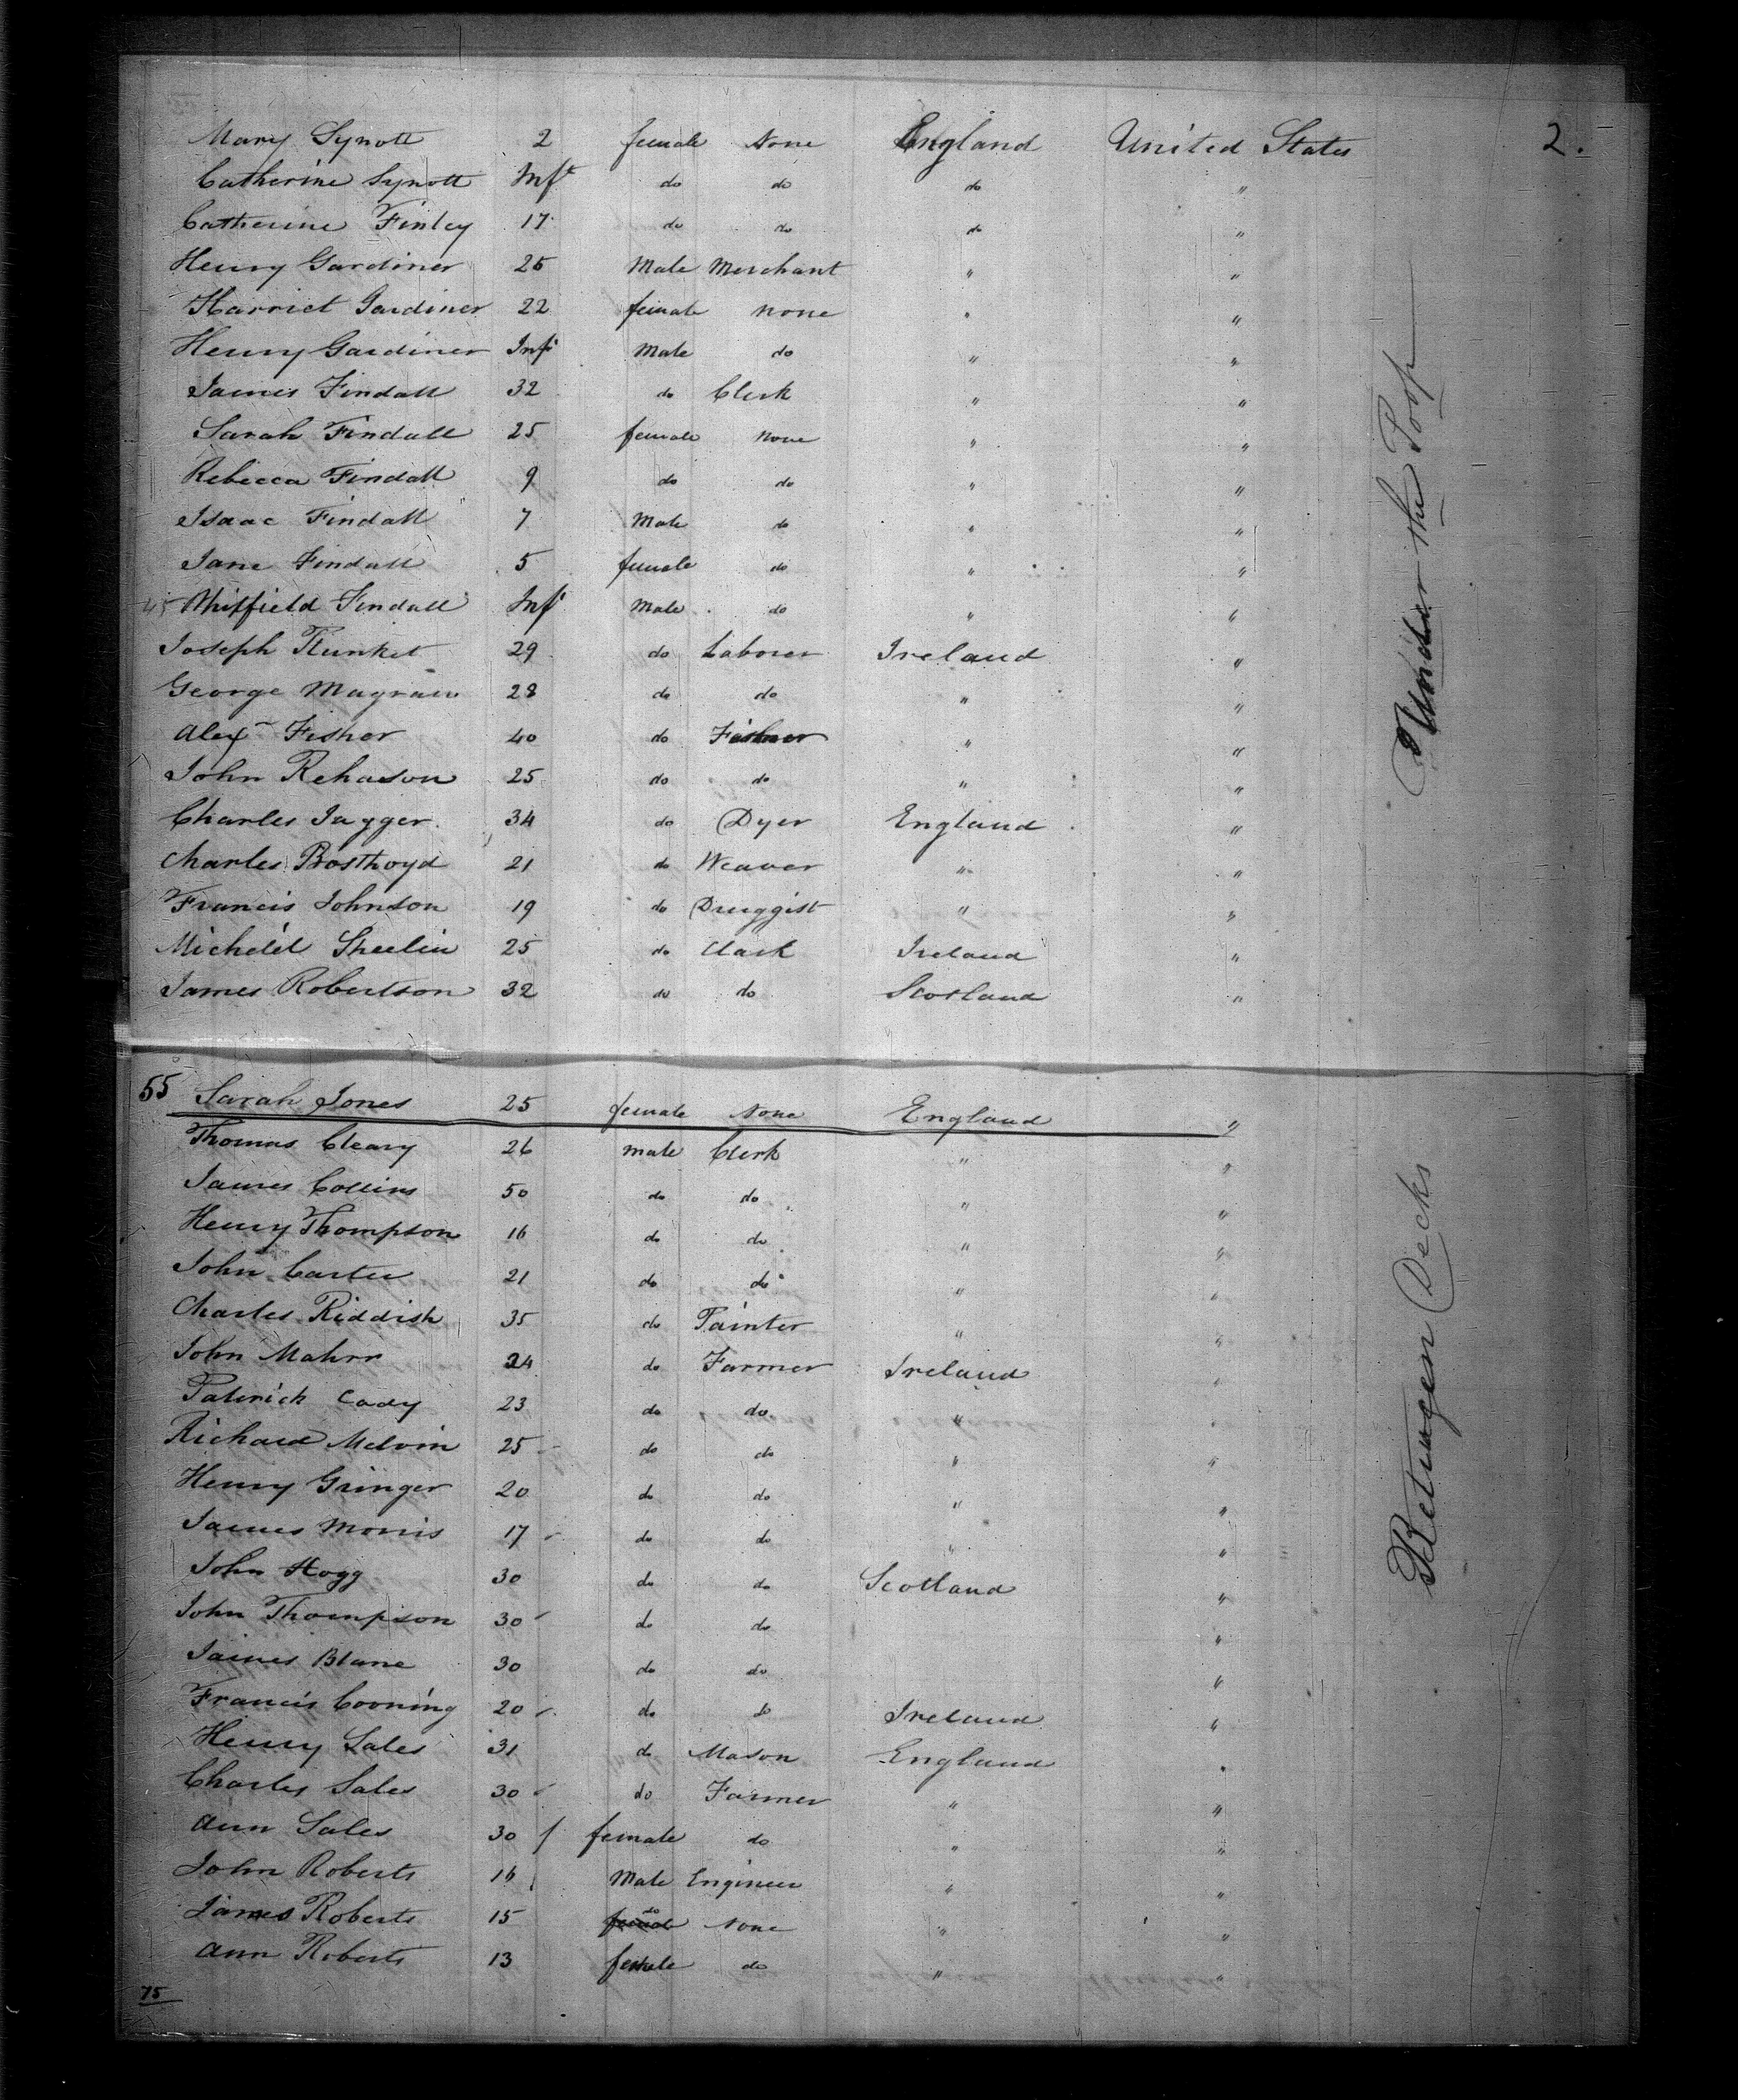 2.
Mary Synott 2 female None England United States
Catherine Synott Inft do do do "
Catherine Finley 17 do do do "
Henry Gardiner 25 Male Merchant " "
Harriet Gardiner 22 female none " "
Henry Gardiner Inft Male do " "
James Findall 32 do Clerk " "
Sarah Findall 25 female none " "
Rebecca Findall 9 do do " "
Isaac Findall 7 Male do " "
Jane Findall 5 female do " "
45 Whitfield Findall Inft Male do " "
Joseph Plunket 29 do Laborer Ireland "
George Magrain 28 do do " "
Alex Fisher 40 do " "
John Rehason 25 do do " "
Charles Jagger 34 do Dyer England "
Charles Bosthoyd 21 do Weaver " "
Francis Johnson 19 do Druggist " "
Michell Sheelin 25 do Clark Ireland "
James Robertson 32 do do Scotland "
Under the Poop
55 Sarah Jones 25 female None England "
Thomas Cleary 26 male Clerk " "
James Collins 50 do do " "
Henry Thompson 16 do do " "
John Carter 21 do do " "
Charles Riddish 35 do Painter " "
John Mahrr 24 do Farmer Ireland "
Paterick Cody 23 do do " "
Richard Melvin 25 do do " "
Henry Gringer 20 do do " "
James Morris 17 do do " "
John Hogg 30 do do Scotland "
John Thompson 30 do do "
James Blane 30 do do "
Francis Cooning 20 do do Ireland "
Henry Sales 31 do Mason England "
Charles Sales 30 do Farmer " "
Ann Sales 30 female do " "
John Roberts 16 Male Engineer " "
James Roberts 15 do None " "
Ann Roberts 13 female do " "
75
Betwgen Decks